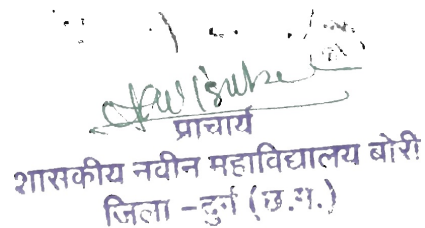 प्राचार्य
शासकीय नवीन महाविद्यालय बोरी
जिला - दुर्ग (छ.ग.)